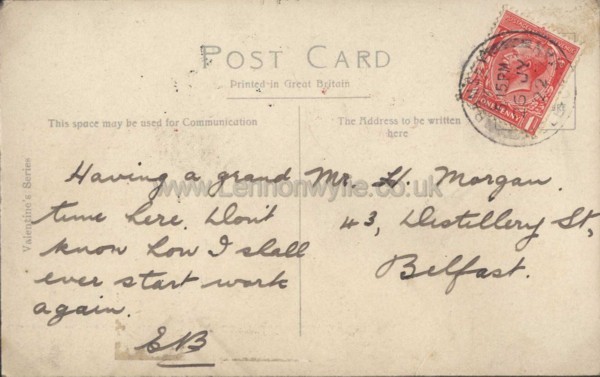 POST CARD
Printed in Great Britain
This space may be used for Communication
The Address to be written
here
Valentine's Series
www.Lennonwylie.co.uk
Having a grand
time here. Don't
know how I shall
ever start work
again.
EB
Mr. H. Morgan.
43, Distillery St,
Belfast.
ONE PENNY
15 PM
JY
22